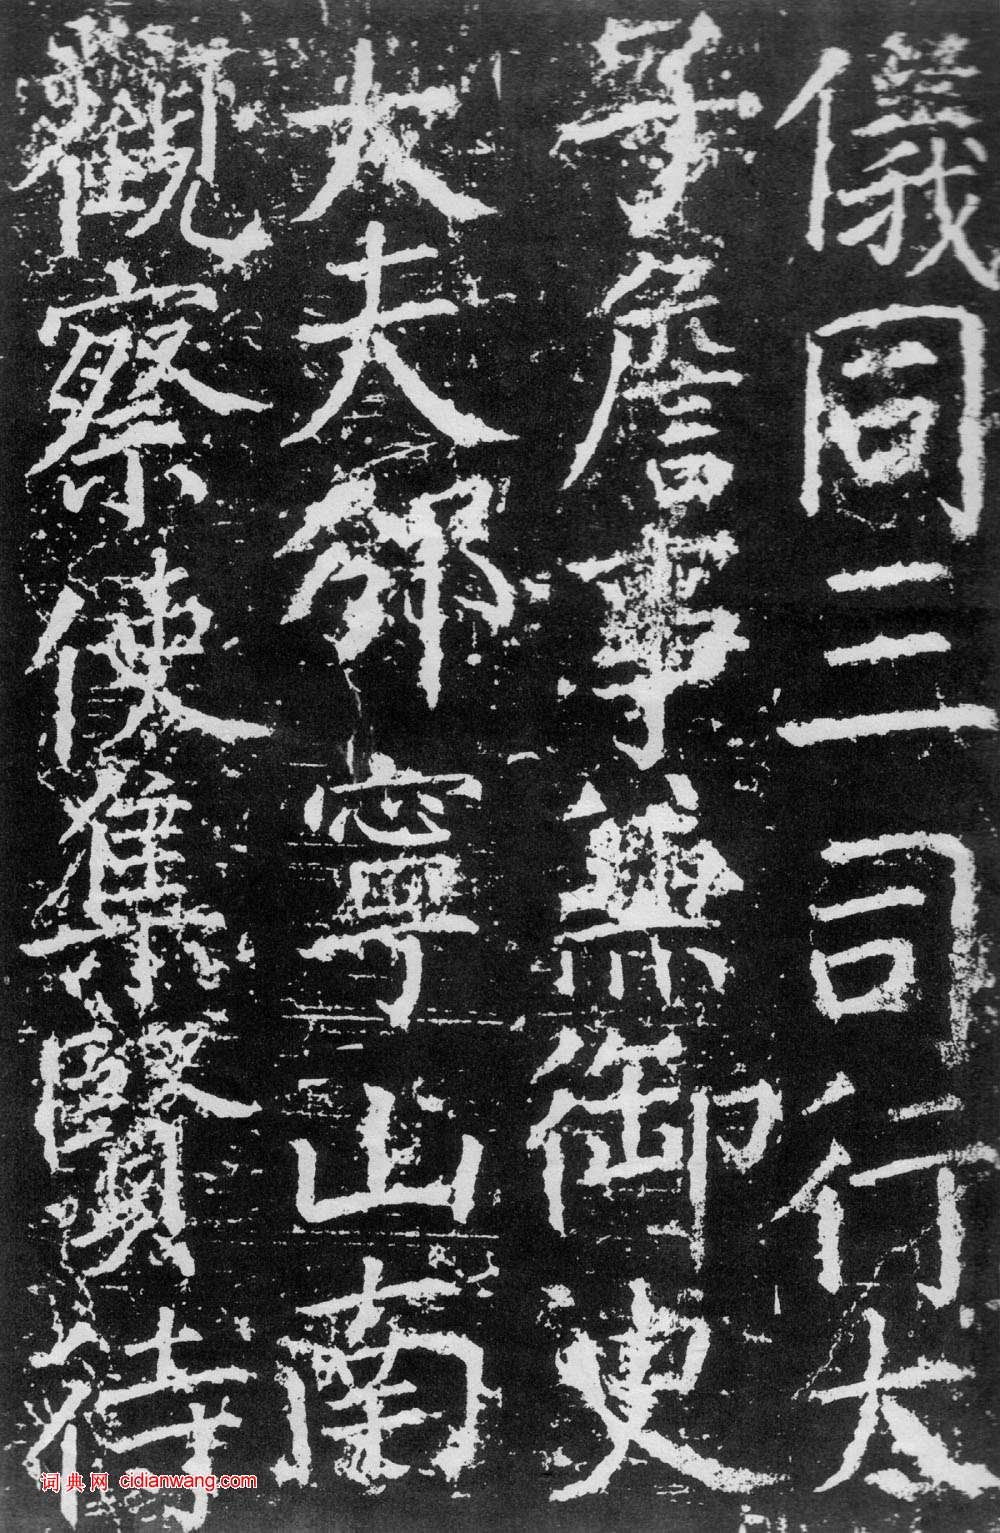 儀同三司行太
子詹事兼御史
大夫邠寧山南
觀察使集賢待
词典网 cidianwang.com